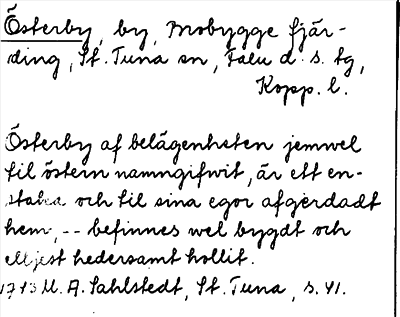 Österby, by, Mobygge fjär-
ding, St. Tuna sn, Falu d. s. tg,
Kopp. l.
Österby af belägenheten jemwel
til östern namngifwit, är ett en-
staka och til sina egor afgerdadt
hem, -- befinnes wel bygdt och
elljest hedersamt hollit.
1743 M. A. Sahlstedt, St. Tuna, s. 41.